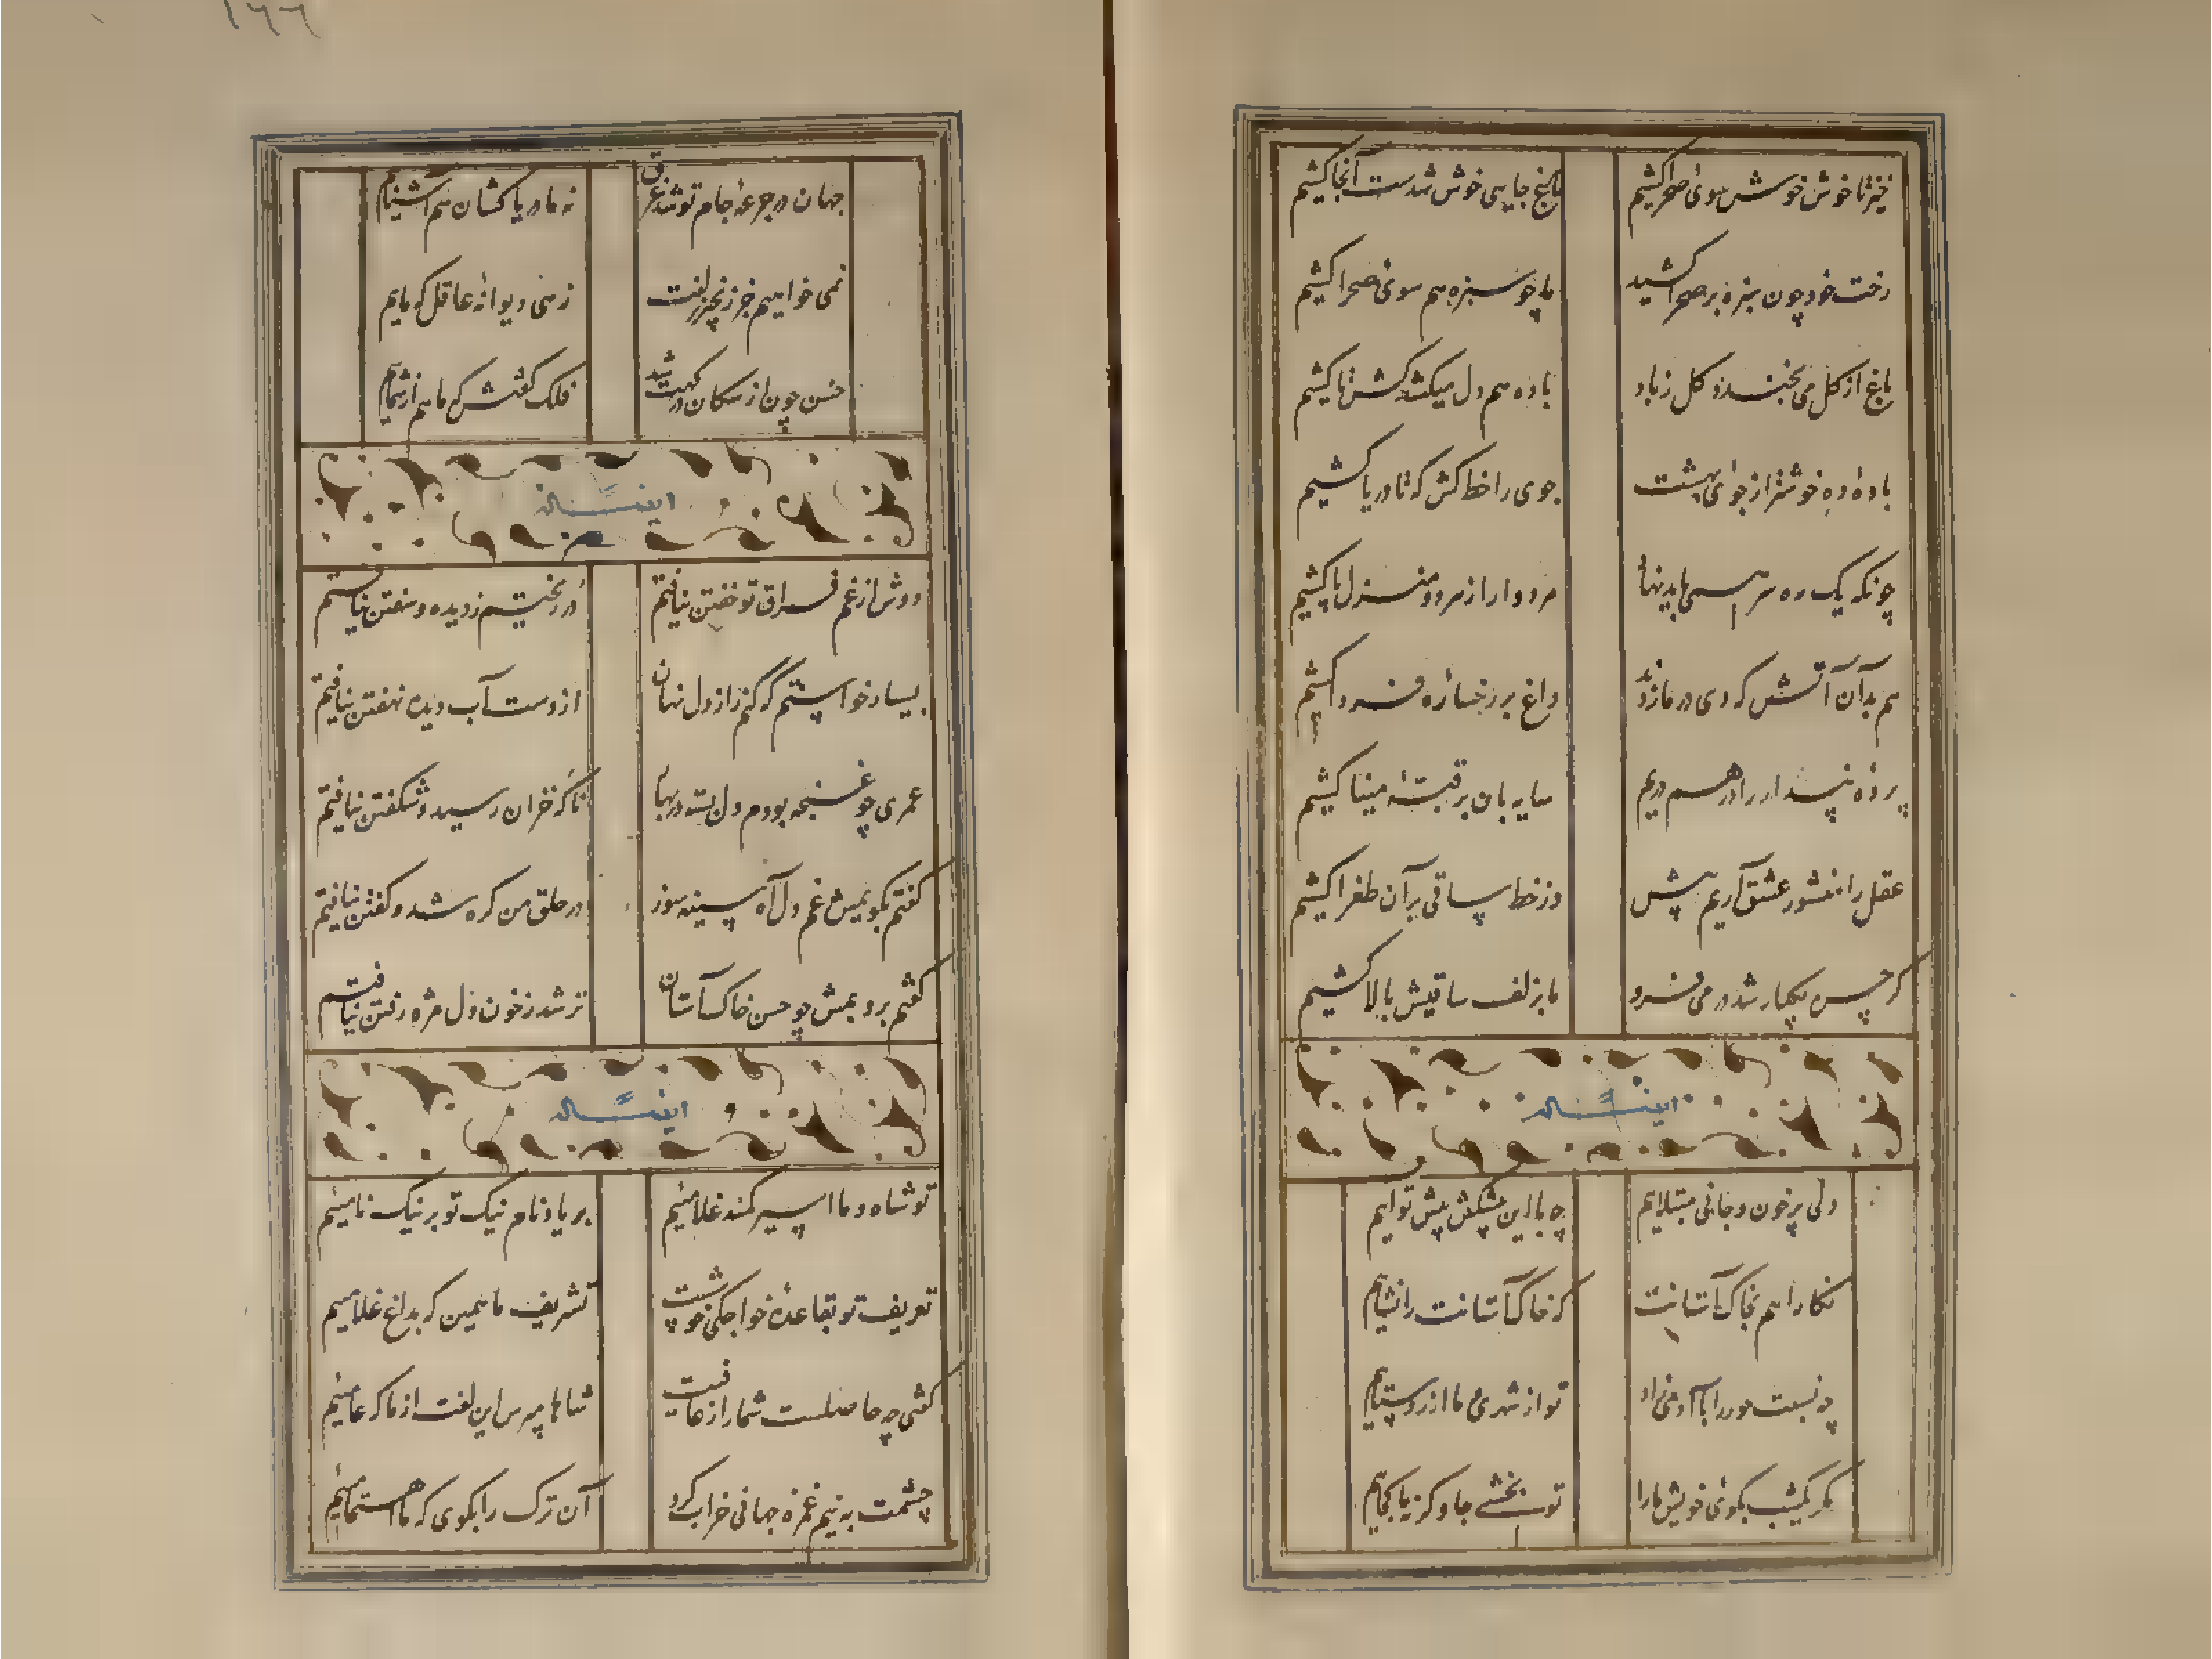 خیز تا خوش خوش سوی صحرا کشیم
باغ جایی خوش شدست آنجا کشیم
رخت خود چون سبزه بر صحرا کشید
ما چو سبزه هم سوی صحرا کشیم
باغ از گل می بخندد گل ز باد
باده هم دل میکشد کش تا کشیم
باده ده خوشتر از جوی بهشت
جوی را خط کش که تا دریا کشیم
چونکه یک ره سر همی باید نهاد
مردوار از مرد و منزل پا کشیم
هم بدآن آتش که دی در ما زدند
داغ بر رخساره فردا کشیم
پرده پندار را در هم دریم
سایه بان بر قبه مینا کشیم
عقل را منشور عشق آریم پیش
وز خط ساقی بر آن طغرا کشیم
گر حسن یکبار شد در می فرو
ما بزلف ساقیش بالا کشیم
ایضا له
دلی پر خون و جانی مبتلاییم
چه با این پیشکش پیش تو آییم
نگارا هم بخاک آستانت
که خاک آستانت را نشاییم
چه نسبت حور را با آدمی زاد
تو از شهری ما از روستاییم
مگر یکشب بکوی خویش ما را
تو بخشی جا وگرنه ما کجاییم
۱۶۶
جهان در جرعه جام تو شد غرق
نه ما دریاکشان هم آشناییم
نمی خواهیم جز زنجیر زلفت
زهی دیوانه عاقل که ماییم
حسن چون از سگان درگهت شد
فلک گفتش که ما هم از شماییم
ایضا له
دوش از غم فراق تو خفتن نیافتم
در ریختیم ز دیده و سفتن نیافتم
بسیار خواستم که کنم راز دل نهان
از دست آب دیده نهفتن نیافتم
عمری چو غنچه بودم دل بسته در بهار
تا که خزان رسید و شکفتن نیافتم
گفتم بگویمش غم دل آه سینه سوز
در حلق من گره شد و گفتن نیافتم
گفتم بروبمش چو حسن خاک آستان
تر شد ز خون دل مژه رفتن نیافتم
ایضا له
تو شاه و ما اسیر کمند غلامییم
بر یاد نام نیک تو بر نیک نامییم
تعریف تو بقاعده خواجگی خوشست
تشریف ما همین که بداغ غلامییم
گفتی چه حاصلست شما را ز عافیت
شاها مپرس این لغت از ما که عامییم
چشمت به نیم غمزه جهانی خراب کرد
آن ترک را بگوی که ما هم